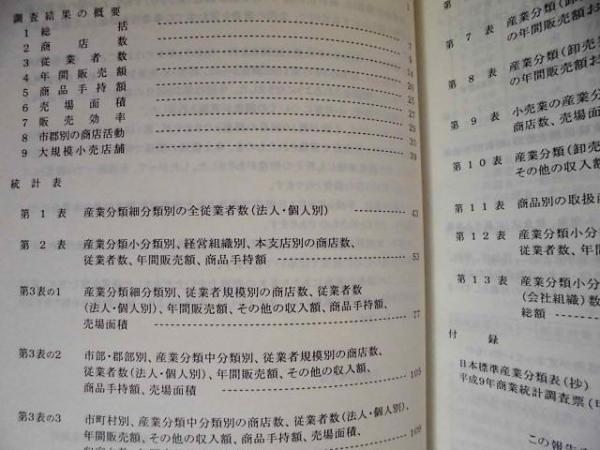 調査結果の概要
1 総括
2 商店数 7
3 従業者数 9
4 年間販売額 14
5 商品手持額
6 売場面積
7 販売効率
8 市郡別の商店活動
9 大規模小売店舗 39
統計表
第1表 産業分類細分類別の全従業者数(法人・個人別) 43
第2表 産業分類小分類別、経営組織別、本支店別の商店数、
従業者数、年間販売額、商品手持額 53
第3表の1 産業分類細分類別、従業者規模別の商店数、従業者数
(法人・個人別)、年間販売額、その他の収入額、商品手持額、
売場面積 77
第3表の2 市部・郡部別、産業分類中分類別、従業者規模別の商店数、
従業者数(法人・個人別)、年間販売額、その他の収入額、
商品手持額、売場面積 105
第3表の3 市町村別、産業分類中分類別の商店数、従業者数(法人・個人別)、
年間販売額、その他の収入額、商品手持額、売場面積、 109
第7表 産業分類(卸売
の年間販売額お
第8表 産業分類(卸売
の年間販売額お
第9表 小売業の産業分
商店数、売場面
第10表 産業分類(卸売
その他の収入額
第11表 商品別の取扱商
第12表 産業分類小分
従業者数、年間
第13表 産業分類小分
(会社組織)数
総額
付録
日本標準産業分類表(抄)
平成9年商業統計調査票(
この報告